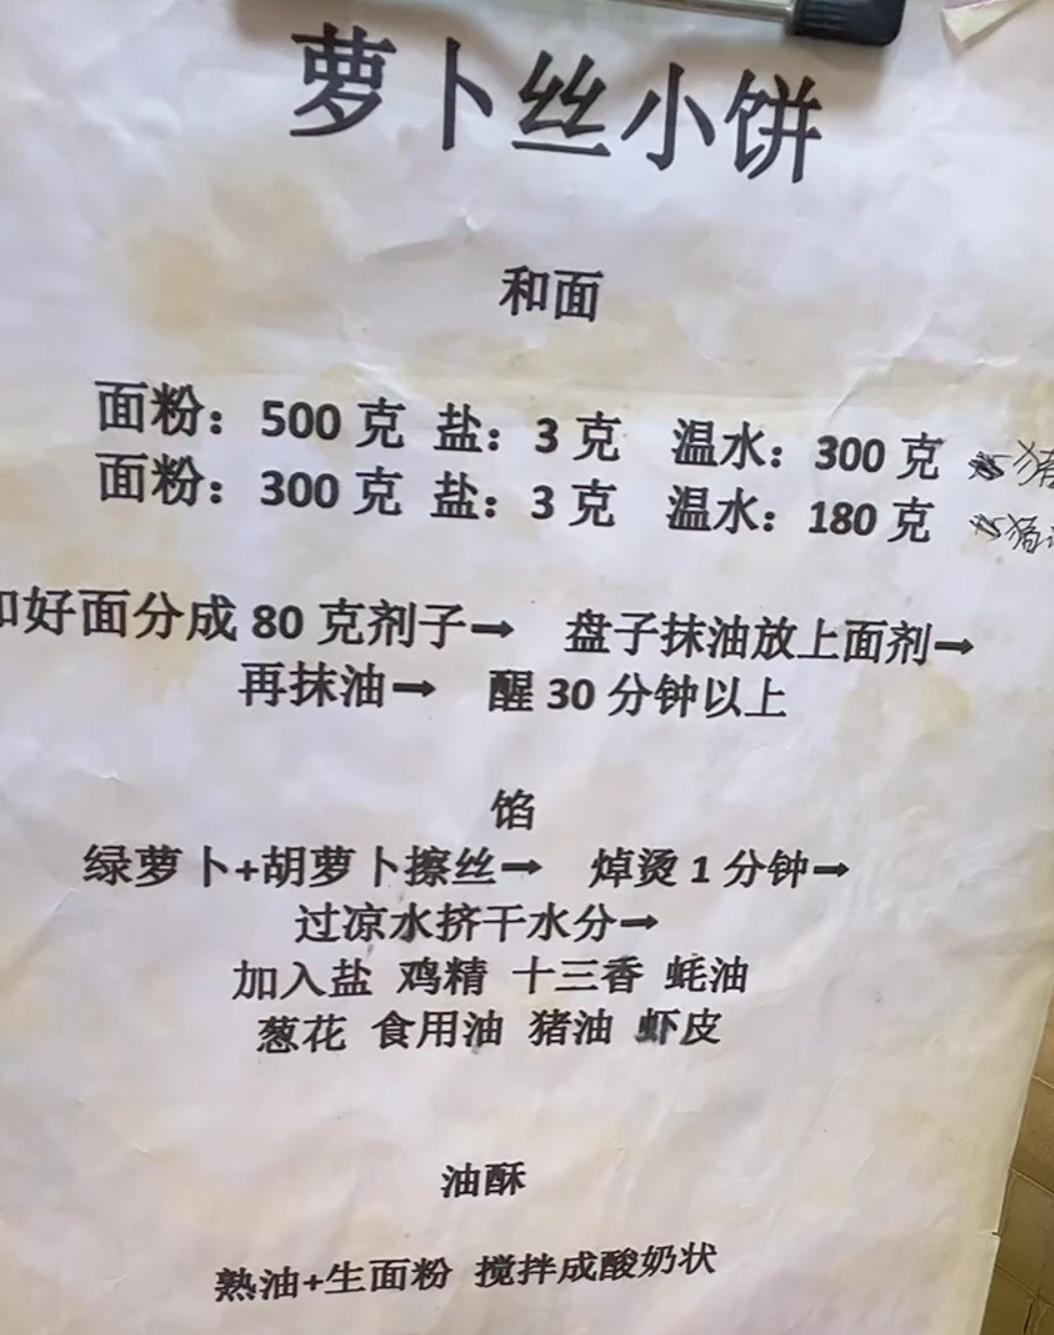 萝卜丝小饼
和面
面粉：500 克 盐：3 克 温水：300 克
面粉：300 克 盐：3 克 温水：180 克
好面分成 80 克剂子➞ 盘子抹油放上面剂➞
再抹油➞ 醒 30 分钟以上
馅
绿萝卜+胡萝卜擦丝➞ 焯烫 1 分钟➞
过凉水挤干水分➞
加入盐 鸡精 十三香 蚝油
葱花 食用油 猪油 虾皮
油酥
熟油+生面粉 搅拌成酸奶状